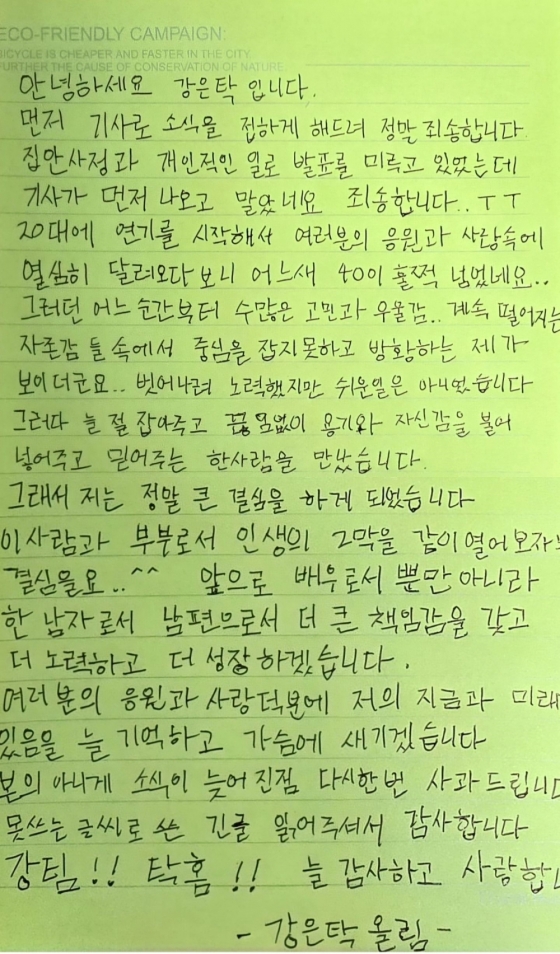 ECO-FRIENDLY CAMPAIGN:
BICYCLE IS CHEAPER AND FASTER IN THE CITY
FURTHER THE CAUSE OF CONSERVATION OF NATURE
안녕하세요 강은탁 입니다.
먼저 기사로 소식을 접하게 해드려 정말 죄송합니다
집안사정과 개인적인 일로 발표를 미루고 있었는데
기사가 먼저 나오고 말았네요 죄송합니다.. ㅜㅜ
20대에 연기를 시작해서 여러분의 응원과 사랑속에
열심히 달려오다보니 어느새 40이 훌쩍 넘었네요..
그러던 어느순간부터 수많은 고민과 우울감.. 계속 떨어지는
자존감 들 속에서 중심을 잡지못하고 방황하는 제가
보이더군요.. 벗어나려 노력했지만 쉬운일은 아니였습니다
그러다 늘 절 잡아주고 끊임없이 용기와 자신감을 불어
넣어주고 믿어주는 한사람을 만났습니다.
그래서 저는 정말 큰 결심을 하게 되었습니다
이사람과 부부로서 인생의 2막을 같이 열어보자는
결심을요..^^ 앞으로 배우로서 뿐만 아니라
한 남자로서 남편으로서 더 큰 책임감을 갖고
더 노력하고 더 성장하겠습니다.
여러분의 응원과 사랑덕분에 저의 지금과 미래
있음을 늘 기억하고 가슴에 새기겠습니다
본의 아니게 소식이 늦어진점 다시한번 사과드립니다
못쓰는 글씨로 쓴 긴글 읽어주셔서 감사합니다
강팀!! 탁홈!! 늘 감사하고 사랑합니
- 강은탁 올림 -